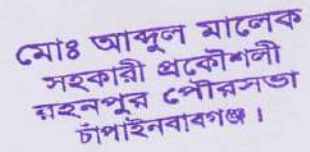 মোঃ আব্দুল মালেক
সহকারী প্রকৌশলী
রহনপুর পৌরসভা
চাঁপাইনবাবগঞ্জ।